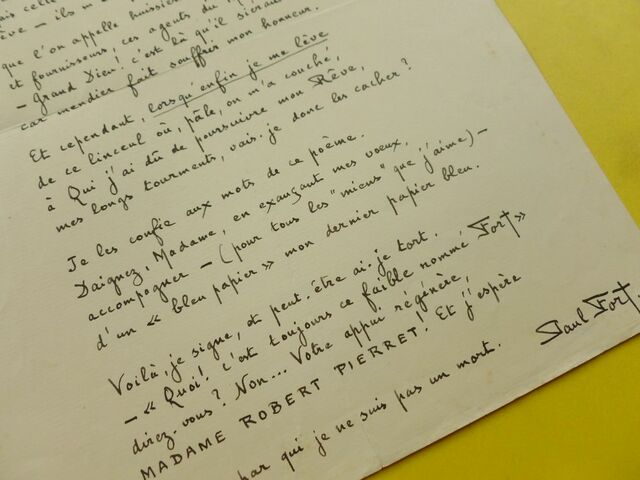 ais celle
rêve — ils m
que l'on appelle huissier
et fournisseurs, ces agents du
— Grand Dieu! c'est là qu'il siérait
car mendier fait souffrir mon honneur.
Et cependant, lorsqu'enfin je me lève
de ce linceul où, pâle, on m'a couché,
à Qui j'ai dû de poursuivre mon Rêve,
mes longs tourments, vais-je donc les cacher?
Je les confie aux mots de ce poème.
Daignez, Madame, en exauçant mes vœux,
accompagner — (pour tous les "miens" que j'aime) —
d'un « bleu papier » mon dernier papier bleu.
Voilà, je signe, et peut-être ai-je tort.
— « Quoi! c'est toujours ce faible nommé Fort »
direz-vous? Non... Votre appui régénère,
MADAME ROBERT PIERRET! Et j'espère
par qui je ne suis pas un mort.
Paul Fort.